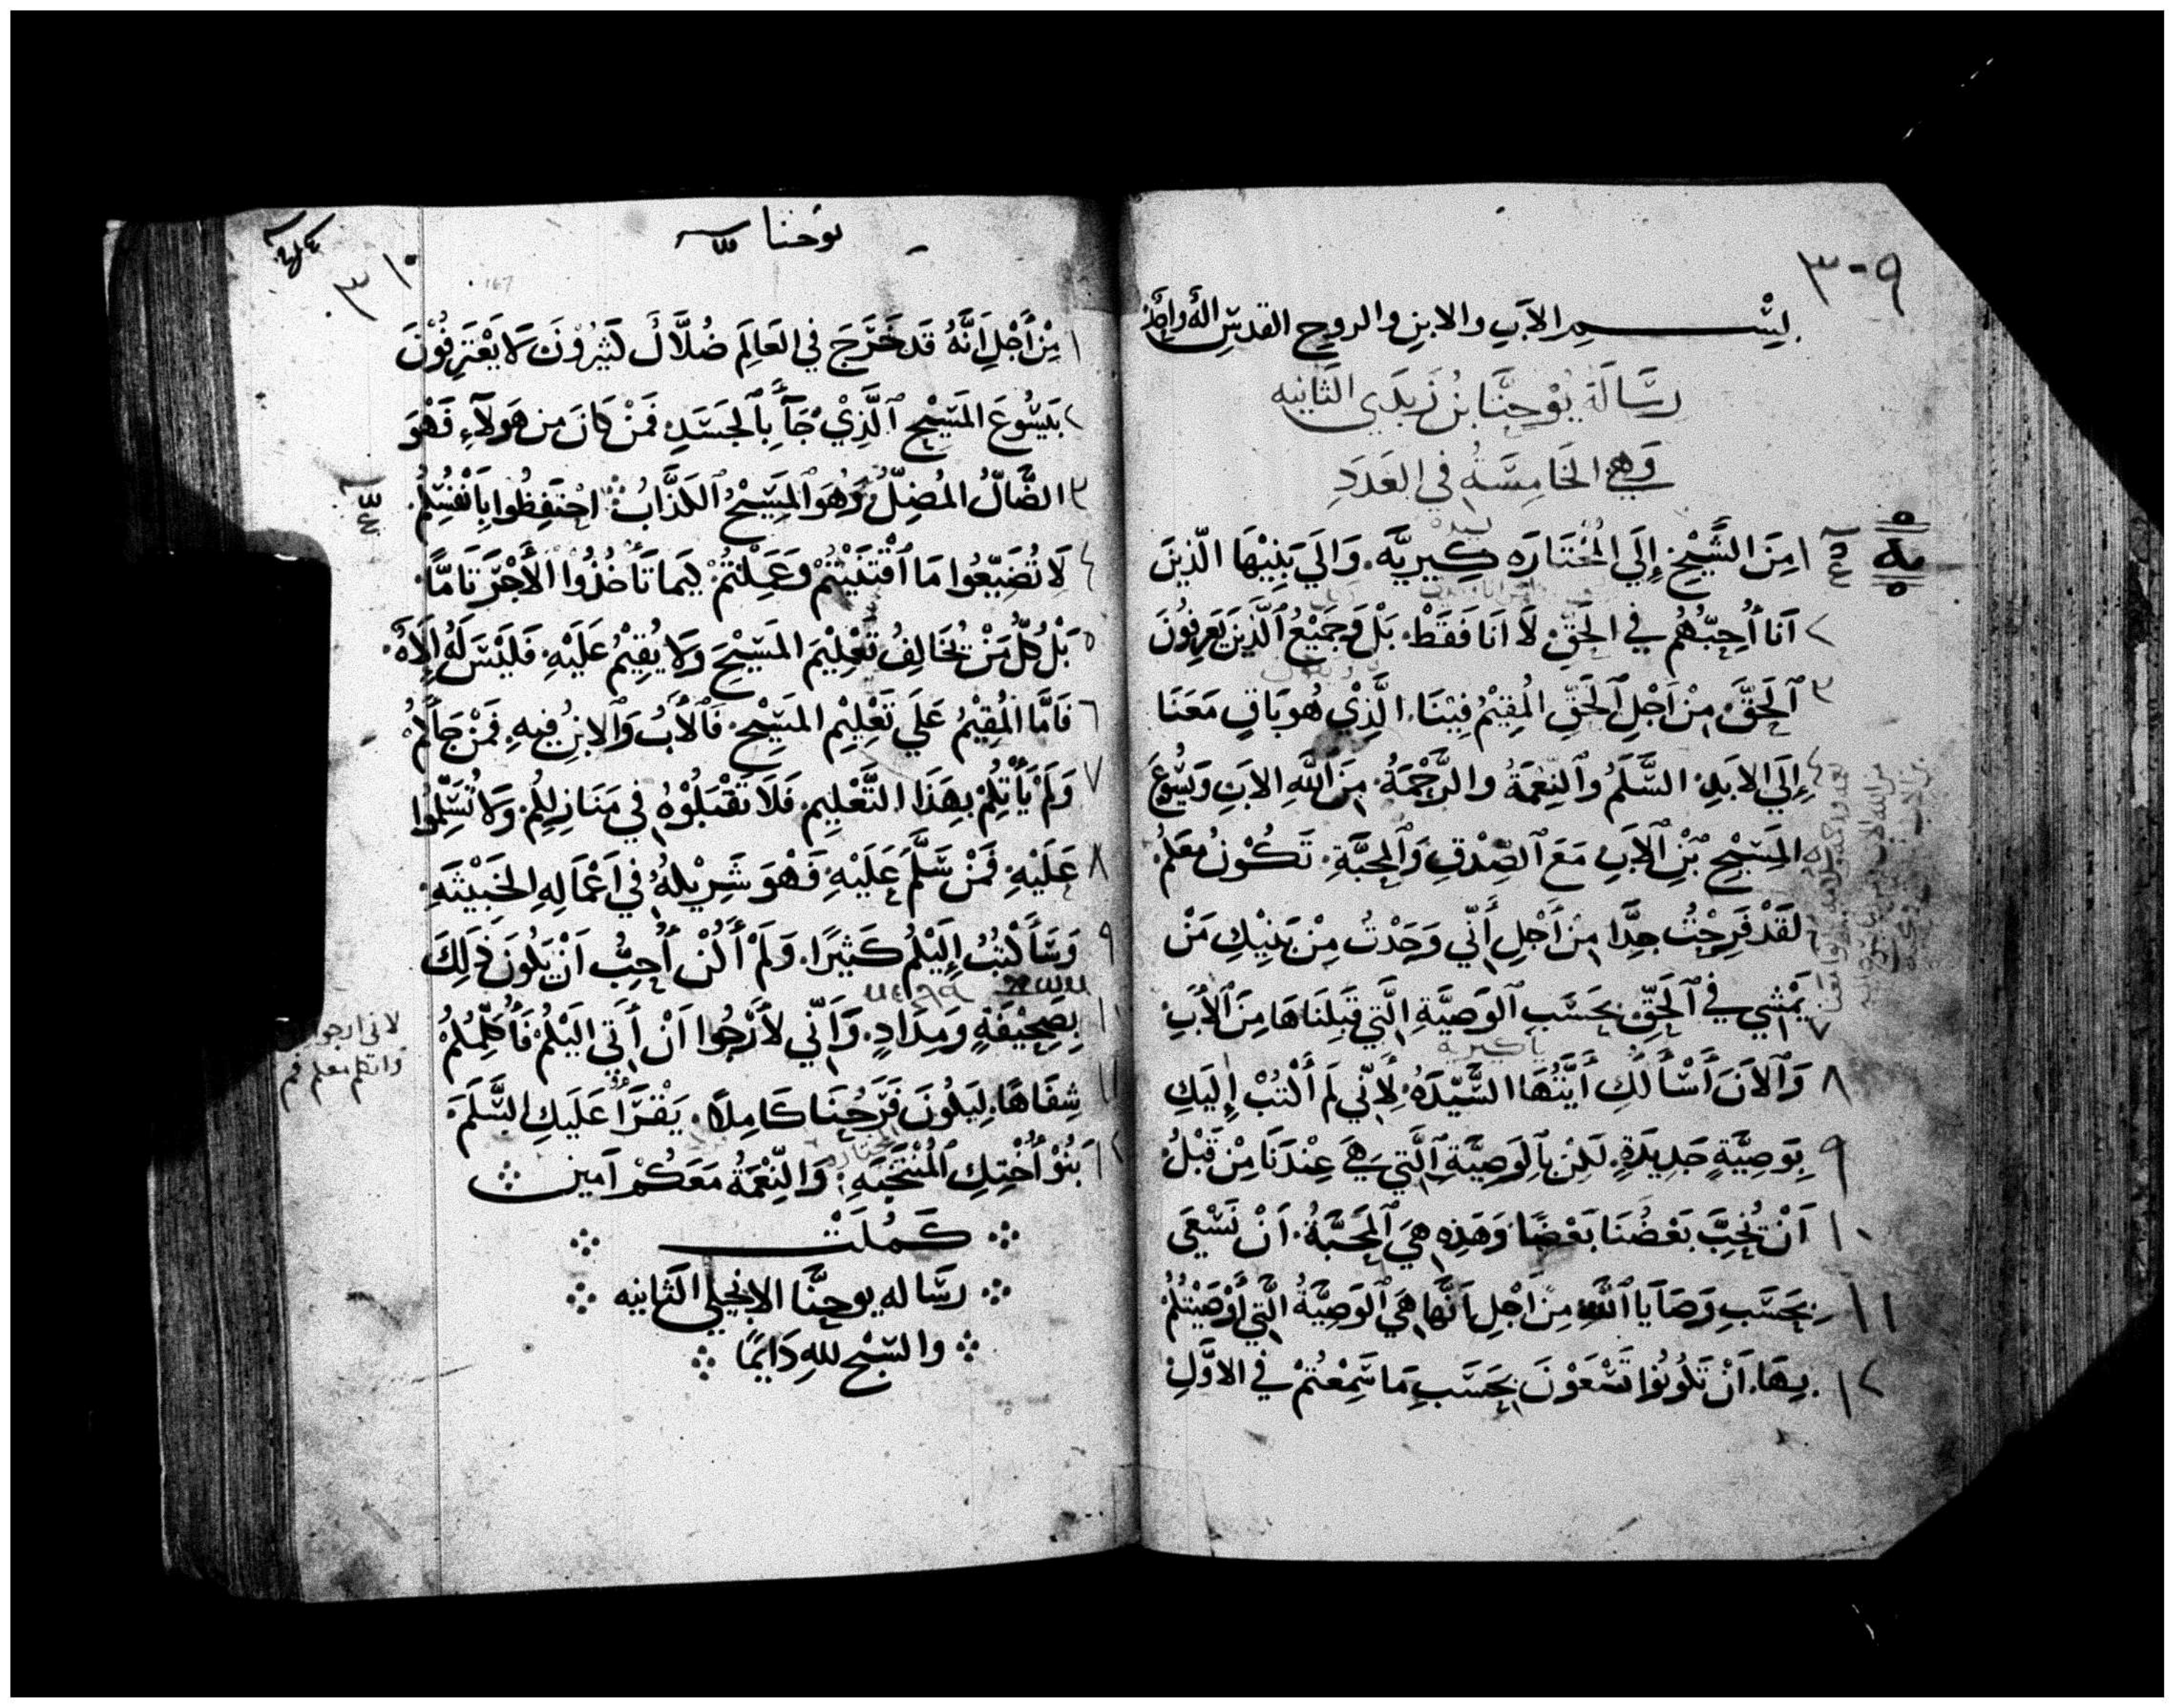 ٣٠٩
بِسْمِ الآبِ والابنِ والروحِ القدسِ الله واحد
رسَالَة يُوحنَّا بن زَبدَي الثانيه
وَهِي الخَامِسَةُ في العَدَدِ
١ مِنَ الشَّيْخِ إِلَي المُخْتَارَه كِيرِيَّه. وَالَي بَنِيْهَا الّذِينَ
٢ آنَا أُحِبُّهُم في الحَقِّ لَا انَا فَقَطْ. بَلْ وَجَمِيْعُ ٱلَّذِينَ يَعرِفُونَ
٣ ٱلحَقَّ. مِنْ اَجْلِ ٱلحَقِّ المُقِيْمُ فِيْنَا. الَّذِيْ هُو بَاقٍ مَعَنَا
٤ إِلَي الابَدِ. السَّلَمُ وَٱلنِّعمَةُ والرَّحْمَةُ. مِنَ اللَّهِ الابِ وَيَسُوعَ
٥ المَسِيْحِ بْنِ ٱلآبِ مَعَ ٱلصِّدْقِ وَٱلمحَبَّةِ. تَكُوْنُ مَعَكُمْ.
لقَدْ فَرِحْتُ جِدًّا مِنْ أَجْلِ أَنِّي وَجَدْتُ مِنْ بَنِيْكِ مَنْ
٧ يَمْشِي في ٱلحَقِّ. بحَسَبِ ٱلوَصِيَّةِ الَّتِي قَبِلنَاهَا مِنَ ٱلأَبِ.
ياكيرية
٨ وَٱلآنَ أَسْأَلُكِ أَيَّتُهَا السَّيِّدَهُ. لِأَنِّي لَم أَكْتُبْ إِلَيكِ
٩ بِوَصِيَّةٍ جَدِيدَةٍ. لَكِنْ بِٱلوَصِيَّةِ ٱلَّتِي هِيَ عِنْدَنَا مِنْ قَبْلُ
١٠ اَنْ يُحِبَّ بَعْضُنَا بَعْضًا وَهَذِهِ هِيَ ٱلمَحَبَّةُ. اَنْ نَسْعَي
١١ بِحَسَبِ وَصَايَا ٱللَّهِ مِنْ اَجْلِ اَنَّهَا هِيَ ٱلوَصِيَّةُ الَّتِي أَوْصَيْتُكُمْ
١٢ بِهَا. اَنْ تَكُونُوا تَسْعَوْنَ بحَسَبِ مَا سَمِعْتُمْ في الاوَّلِ
يوحنا
٣١٠
167
١ مِنْ أَجْلِ اَنَّهُ قَد خَرَجَ في العَالَمِ ضُلَّالٌ كَثِيرُوْنَ لَا يَعْتَرِفُوْنَ
٢ بيَسُوعَ المَسِيْحِ ٱلَّذِيْ جَآءَ بِٱلجَسَدِ فَمَنْ كَانَ مِن هَولآءِ فَهْوَ
٣ الضَّالُّ المُضِلُّ وَهُوَ ٱلمَسِيْحُ ٱلكَذَّابُ ؛ احْتَفِظُوا بِاَنْفُسِكُمْ.
٤ لَا تُضَيِّعُوا مَا ٱقْتَنَيْتُمْ وَعَمِلْتُمْ. ليمَا تَأخُذُوا ٱلأَجْرَ تَامًّا.
٥ بَلْ كُلُّ مَنْ يُخَالِفُ تَعْلِيْمَ المَسِيْحَ وَلَا يُقِيْمُ عَلَيْهِ. فَلَيْسَ لَهُ اِلَاهٌ.
٦ فَامَّا المُقِيْمُ عَلَي تَعْلِيْمِ المَسِيْحِ. فَٱلأَبُ وَٱلابنُ فِيهِ. فَمَنْ جَأَكُمْ
٧ وَلَمْ يَأْتِكُمْ بهَذَا التَّعْلِيمِ. فَلَا تَقْبَلُوْهُ في مَنَازِلِكُمْ. وَلَا تُسَلِّمُوا
٨ عَلَيْهِ. فَمَنْ سَلَّمَ عَلَيْهِ. فَهْوَ شَرِيْكُهُ في اَعْمَالِهِ الخَبِيْثَه.
٩ وَسَأَكْتُبُ إِلَيْكُمْ كَثِيرًا. وَلَمْ أَكُنْ أُحِبُّ اَنْ يَكُونَ ذَلِكَ
١٠ بِصَحِيْفَةٍ وَمِدَادٍ. وَاَنِّي لأَرْجُوا اَنْ أَتِي اِلَيْكُمْ فَأُكَلِّمُكُمْ
لاني ارجوا
واتكلم معكم فم
١١ شِفَاهًا. لِيَكُونَ فَرَحُنَا كَامِلًا. يَقْرَأُ عَلَيكِ السَّلَمَ
١٢ بَنُوْ أُخْتِكِ ٱلمُنْتَخَبَهِ. وَالنِّعْمَةُ مَعَكُمْ آمين
كَمُلَتْ
رسَاله يوحنَّا الانجيلي الثانيه
والسّبح للهِ دَايمًا